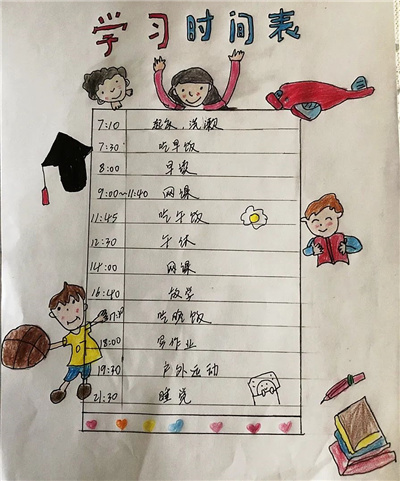 学习时间表
7:10 起床，洗漱
7:30 吃早饭
8:00 早读
9:00~11:40 网课
11:45 吃午饭
12:30 午休
14:00 网课
16:40 放学
17:30 吃晚饭
18:00 写作业
19:30 户外运动
21:30 睡觉